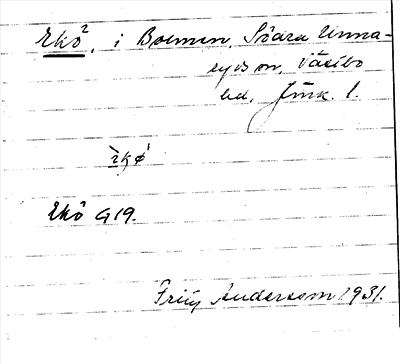 Ekö², i Bolmen, Södra Unna-
ryds sn, Västbo
hd, Jönk. l.
Ekö G19.
Friij Andersson 1931.